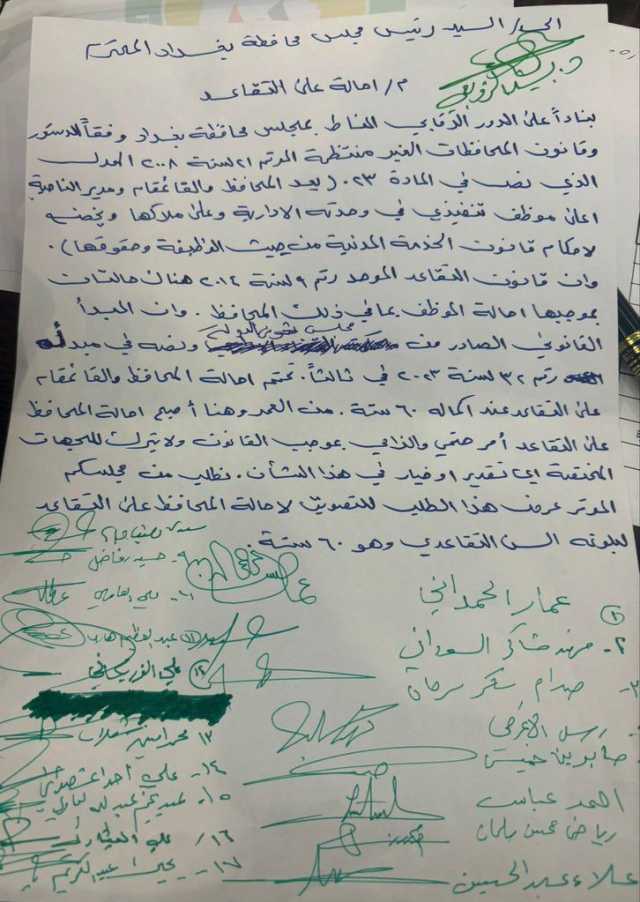 الى / السيد رئيس مجلس محافظة بغداد المحترم
م / احالة على التقاعد
بناءاً على الدور الرقابي المناط بمجلس محافظة بغداد وفقاً للدستور
وقانون المحافظات الغير منتظمة المرقم ٢١ لسنة ٢٠٠٨ المعدل
الذي نص في المادة ٢٣، ( يعد المحافظ والقائمقام ومدير الناحية
اعلى موظف تنفيذي في وحدته الادارية وعلى ملاكها ويخضع
لاحكام قانون الخدمة المدنية من حيث الوظيفة وحقوقها ) .
وان قانون التقاعد الموحد رقم ٩ لسنة ٢٠١٤ هناك حالتان
بموجبها احالة الموظف بما في ذلك المحافظ . وان المبدأ
القانوني الصادر من مجلس شورى الدولة ونصه في مبدأه
رقم ٣٢ لسنة ٢٠٢٣ في ثالثاً . تحتم احالة المحافظ والقائمقام
على التقاعد عند اكماله ٦٠ سنة . من العمر وهنا أصبح احالة المحافظ
على التقاعد أمر حتمي والذاتي بموجب القانون ولا يترك للجهات
المختصة اي تقدير او خيار في هذا الشأن . نطلب من مجلسكم
الموقر عرض هذا الطلب للتصويت لاحالة المحافظ على التقاعد
لبلوغه السن التقاعدي وهو ٦٠ سنة .
عمار الحمداني
٢- مهند شاكر السوداني
صدام سكر سرحان
عباس
رياض محسن سلمان
علاء عبد الحسين
٩- حسين فاضل
١١
١٢ علي
١٣ محمد
١٤- علي احمد
١٥-
١٦/ علي
١٧- يحيى عبد الكريم